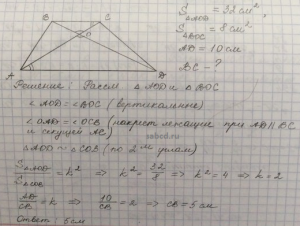 B C
O
A D
S△AOD = 32 см²,
S△BOC = 8 см²
AD = 10 см
BC - ?
Решение: Рассм △AOD и △BOC
∠AOD = ∠BOC (вертикальные)
∠OAD = ∠OCB (накрест лежащие при AD || BC
и секущей AC)
sabcd.ru
△AOD ~ △COB (по 2м углам)
S△AOD / S△COB = k² => k² = 32/8 => k² = 4 => k = 2
AD/CB = k => 10/CB = 2 => CB = 5 см
Ответ: 5 см